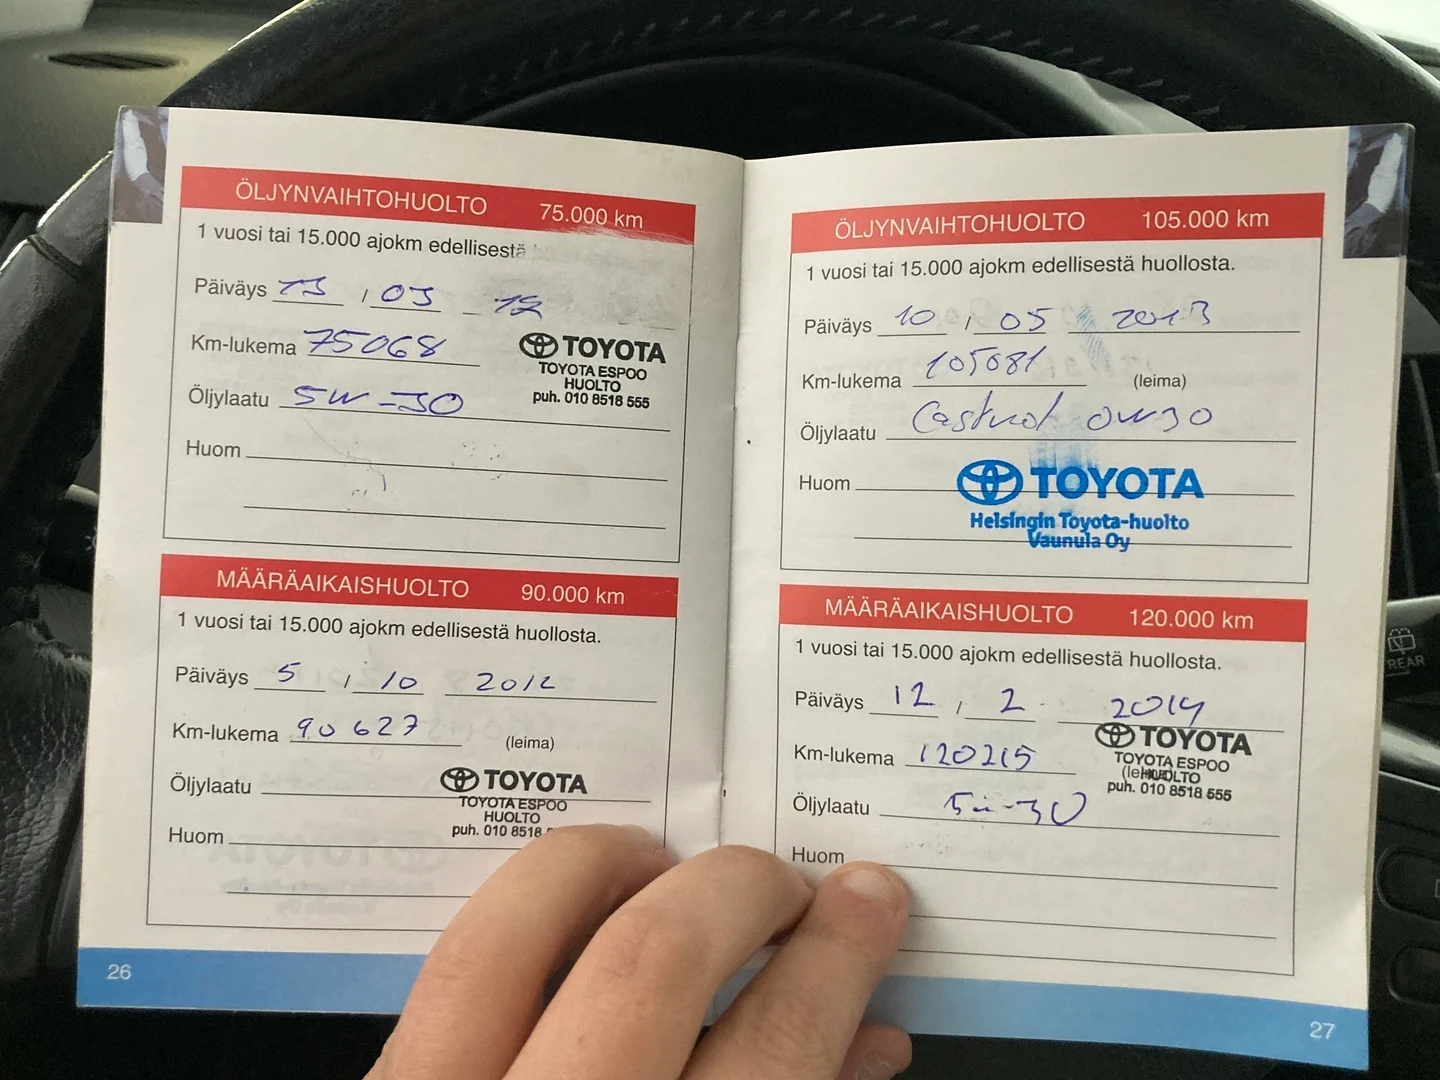 ÖLJYNVAIHTOHUOLTO 75.000 km
1 vuosi tai 15.000 ajokm edellisestä
Päiväys 13 / 03 12
Km-lukema 75068
TOYOTA
TOYOTA ESPOO
HUOLTO
puh. 010 8518 555
Öljylaatu 5W-30
Huom
MÄÄRÄAIKAISHUOLTO 90.000 km
1 vuosi tai 15.000 ajokm edellisestä huollosta.
Päiväys 5 / 10 2012
Km-lukema 90627 (leima)
Öljylaatu
TOYOTA
TOYOTA ESPOO
HUOLTO
puh. 010 8518
Huom
26
ÖLJYNVAIHTOHUOLTO 105.000 km
1 vuosi tai 15.000 ajokm edellisestä huollosta.
Päiväys 10 / 05 2013
Km-lukema 105081 (leima)
Öljylaatu Castrol 0W30
Huom
TOYOTA
Helsingin Toyota-huolto
Vaunula Oy
MÄÄRÄAIKAISHUOLTO 120.000 km
1 vuosi tai 15.000 ajokm edellisestä huollosta.
Päiväys 12 / 2. 2014
Km-lukema 120215
TOYOTA
TOYOTA ESPOO
HUOLTO
puh. 010 8518 555
Öljylaatu 5w-30
Huom
27
REAR